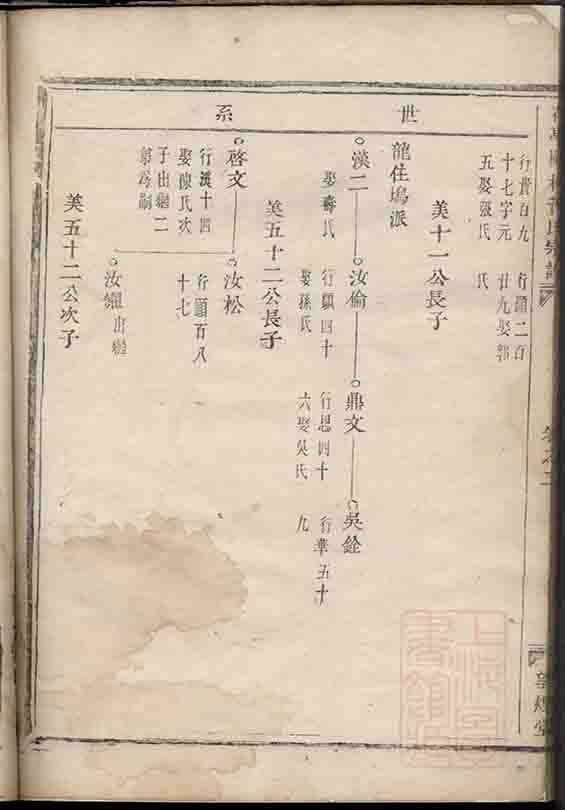 世系
行貴百九
十七字元
五娶張氏
行顯二百
廿九娶郭
氏
美十一公長子
龍住塢派
漢二
娶壽氏
汝倫
行顯四十
娶孫氏
鼎文
行思四十
六娶吳氏
吳銓
行華五十
九
美五十二公長子
啓文
行漢十四
娶陳氏次
子出繼二
弟為嗣
汝松
行顯百八
十七
汝耀出繼
美五十二公次子
卷之三
敦煌堂
上海圖書館藏